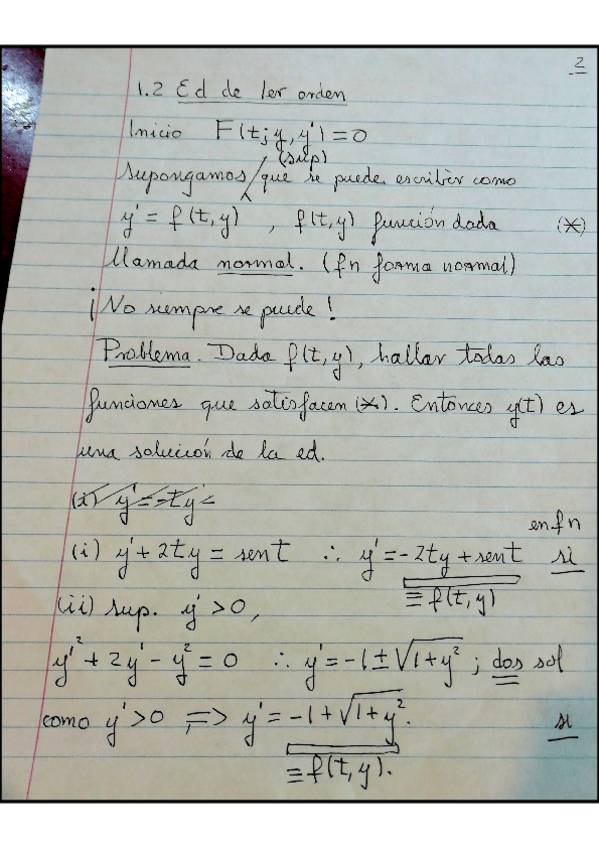 2
1.2 Ed de 1er orden
Inicio F(t; y, y') = 0
(sup)
supongamos que se puede escribir como
y' = f(t, y) , f(t, y) función dada (*)
llamada normal. (fn forma normal)
¡No siempre se puede!
Problema. Dada f(t, y), hallar todas las
funciones que satisfacen (*). Entonces y(t) es
una solución de la ed.
(i) y' = -ty =
en fn
(i) y' + 2ty = sent ∴ y' = -2ty + sent si
≡ f(t, y)
(ii) sup. y' > 0,
y'² + 2y' - y² = 0 ∴ y' = -1 ± √1 + y² ; dos sol
como y' > 0 => y' = -1 + √1 + y². si
≡ f(t, y).